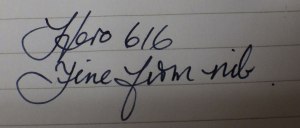 Hero 616
Fine firm nib.